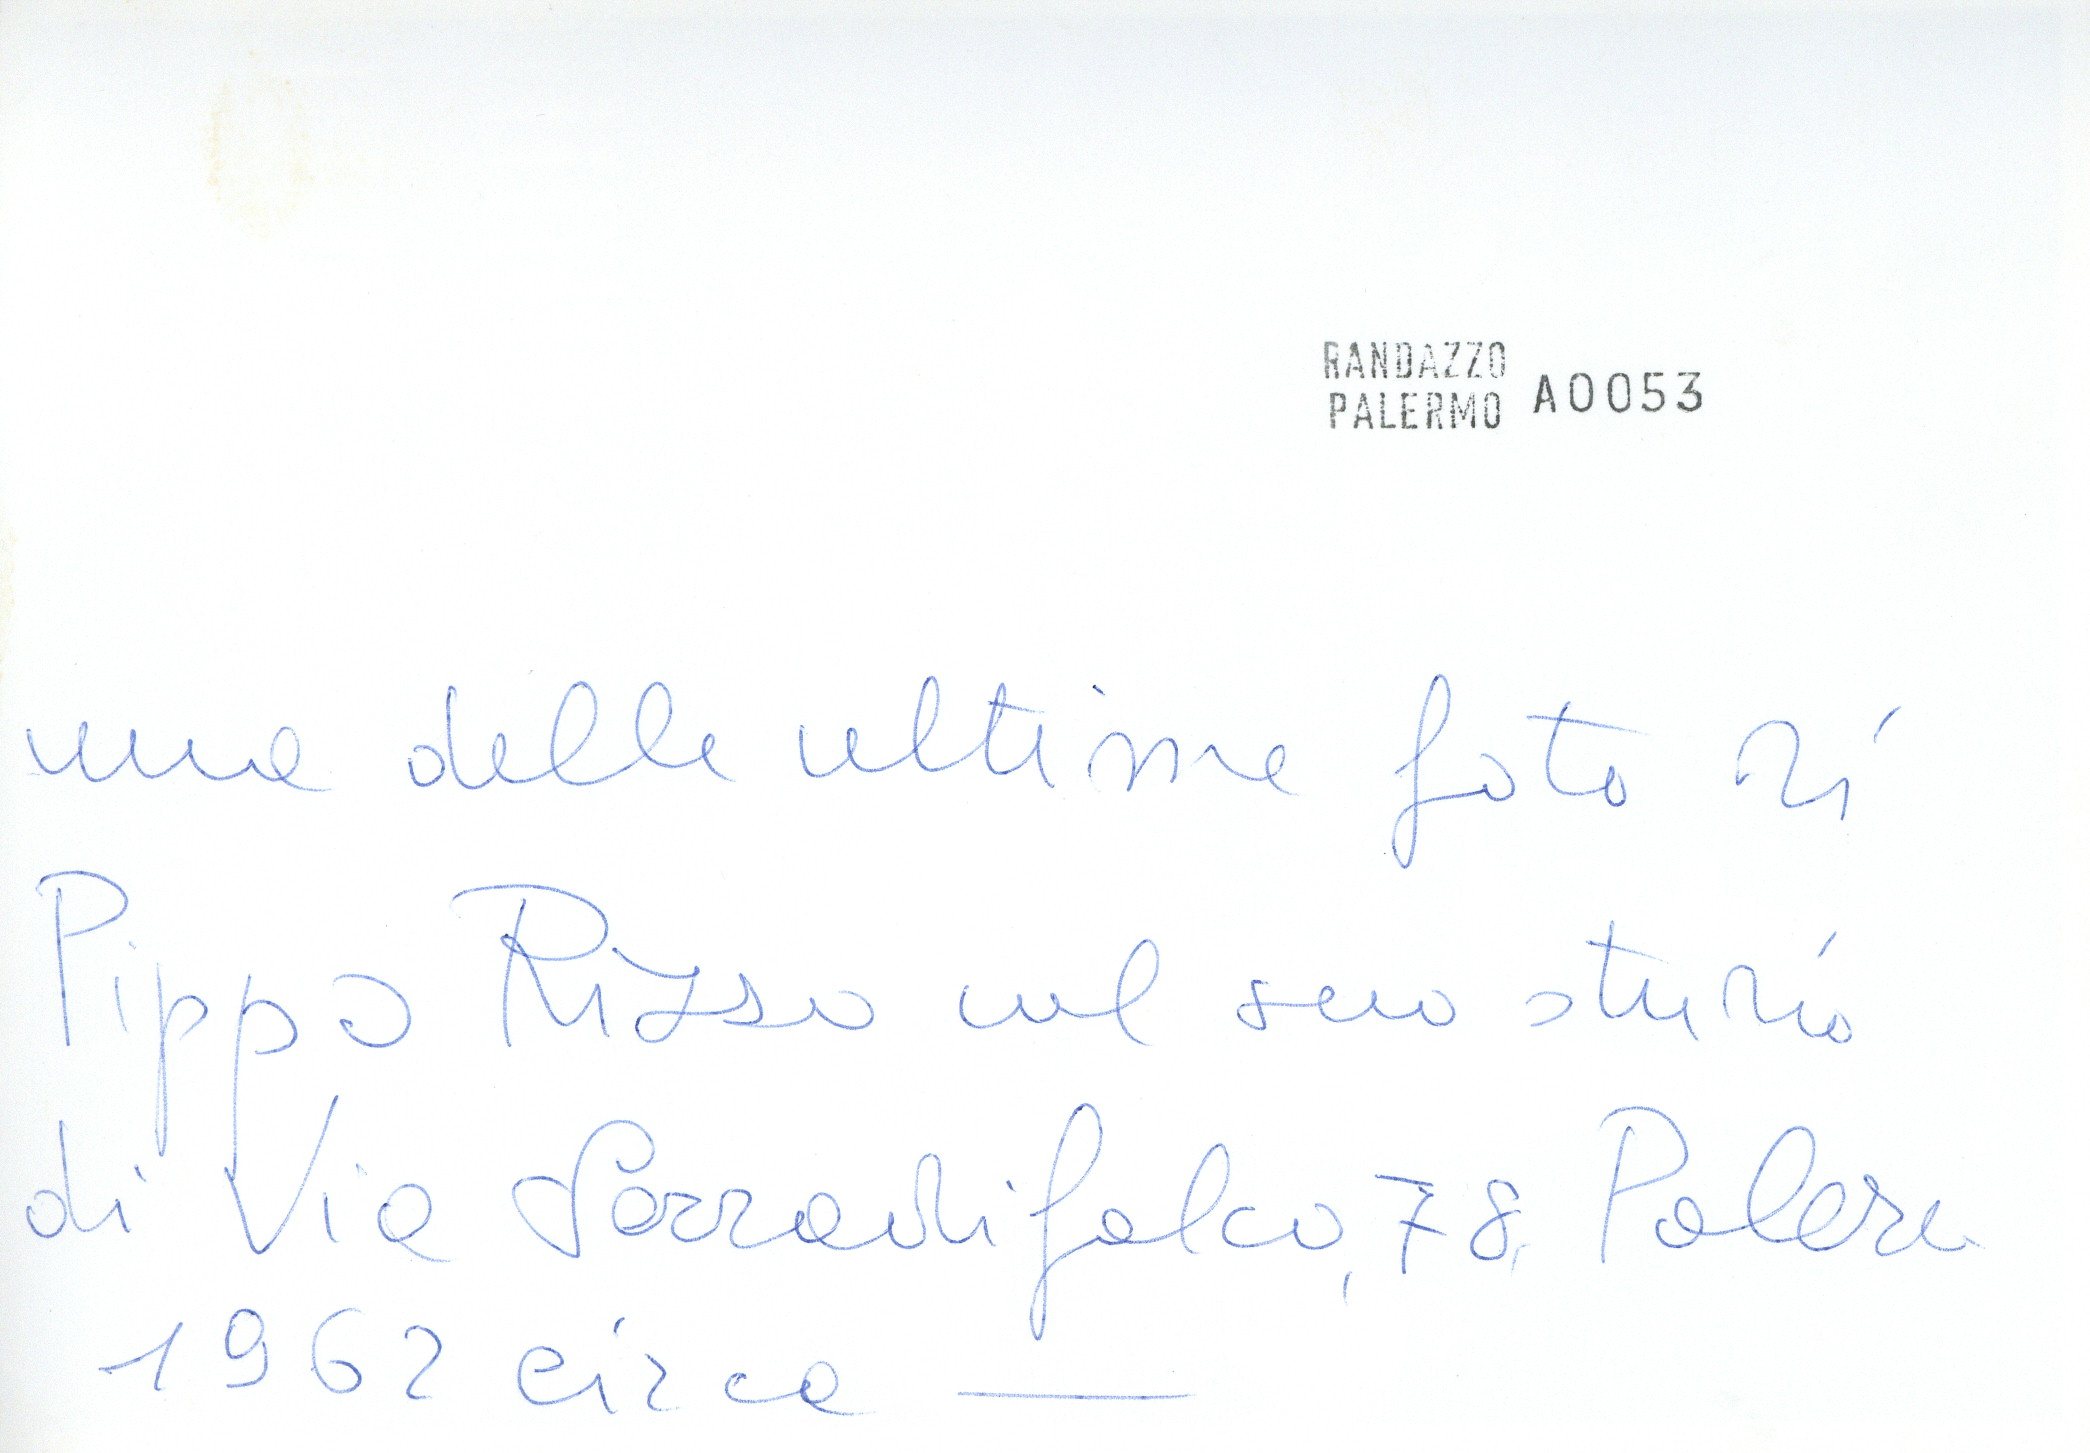 RANDAZZO
PALERMO A0053
una delle ultime foto di
Pippo Rizzo nel suo studio
di Via Serradifalco, 78, Palerm
1962 circa —